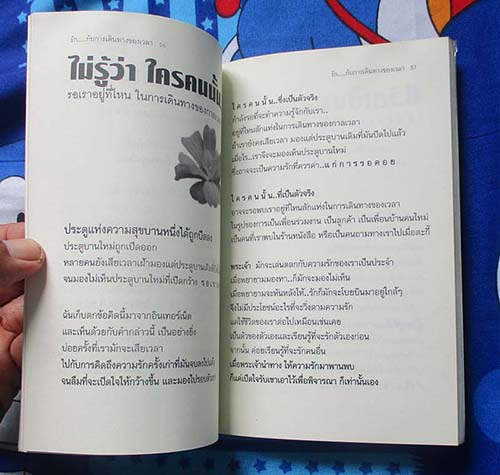 รัก.....กับการเดินทางของเวลา 56
ไม่รู้ว่า ใครคนนั้น
รอเราอยู่ที่ไหน ในการเดินทางของกาลเวลา
ประตูแห่งความสุขบานหนึ่งได้ถูกปิดลง
ประตูบานใหม่ถูกเปิดออก
หลายคนยังเสียเวลาเฝ้ามองแต่ประตูบานเดิมที่
จนมองไม่เห็นประตูบานใหม่ที่เปิดกว้าง
ฉันเก็บตกข้อคิดนี้มาจากอินเทอร์เน็ต
และเห็นด้วยกับคำกล่าวนี้ เป็นอย่างยิ่ง
บ่อยครั้งที่เรามักจะเสียเวลา
ไปกับการคิดถึงความรักครั้งเก่าที่มันจบลงไปแล้ว
จนลืมที่จะเปิดใจให้กว้างขึ้น และมองไปรอบตัว
รัก.....กับการเดินทางของเวลา 57
ใครคนนั้น..ซึ่งเป็นตัวจริง
กำลังรอที่จะทำความรู้จักกับเรา..
อยู่ที่ไหนสักแห่งในการเดินทางของกาลเวลา
ถ้าเรายังคงเสียเวลา มองแต่ประตูบานเดิมที่มันปิดไปแล้ว
เมื่อไร..เราจึงจะมองเห็นประตูบานใหม่
ซึ่งอาจจะเป็นความรักที่ควรค่า..แก่การรอคอย
ใครคนนั้น..ที่เป็นตัวจริง
อาจจะรอพบเราอยู่ที่ไหนสักแห่งในการเดินทางของเวลา
ในรูปของการเป็นเพื่อนร่วมงาน เป็นลูกค้า เป็นเพื่อนบ้านคนใหม่
เป็นคนที่เราพบในร้านหนังสือ หรือเป็นคนถามทางเราไปเมื่อตะกี้
พระเจ้า มักจะเล่นตลกกับความรักของเราเป็นประจำ
เมื่อพยายามมองหา..ก็มักจะมองไม่เห็น
เมื่อพยายามจะหันหลังให้..รักก็มักจะโบยบินมาอยู่ใกล้ๆ
จึงไม่มีประโยชน์อะไรที่จะวิ่งตามความรัก
แค่ใช้ชีวิตของเราต่อไปเหมือนเช่นเคย
เป็นตัวของตัวเองและเรียนรู้ที่จะรักตัวเองก่อน
จากนั้น ค่อยเรียนรู้ที่จะรักคนอื่น
เมื่อพระเจ้านำทาง ให้ความรักมาพานพบ
ก็แค่เปิดใจรับเขาเอาไว้เพื่อพิจารณา ก็เท่านั้นเอง